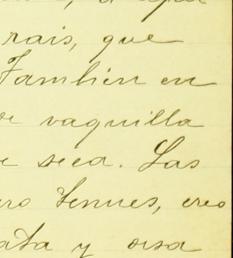 rais, que
Tambien en
de vaquilla
e seca. Las
ro tenues, creo
ata y osa